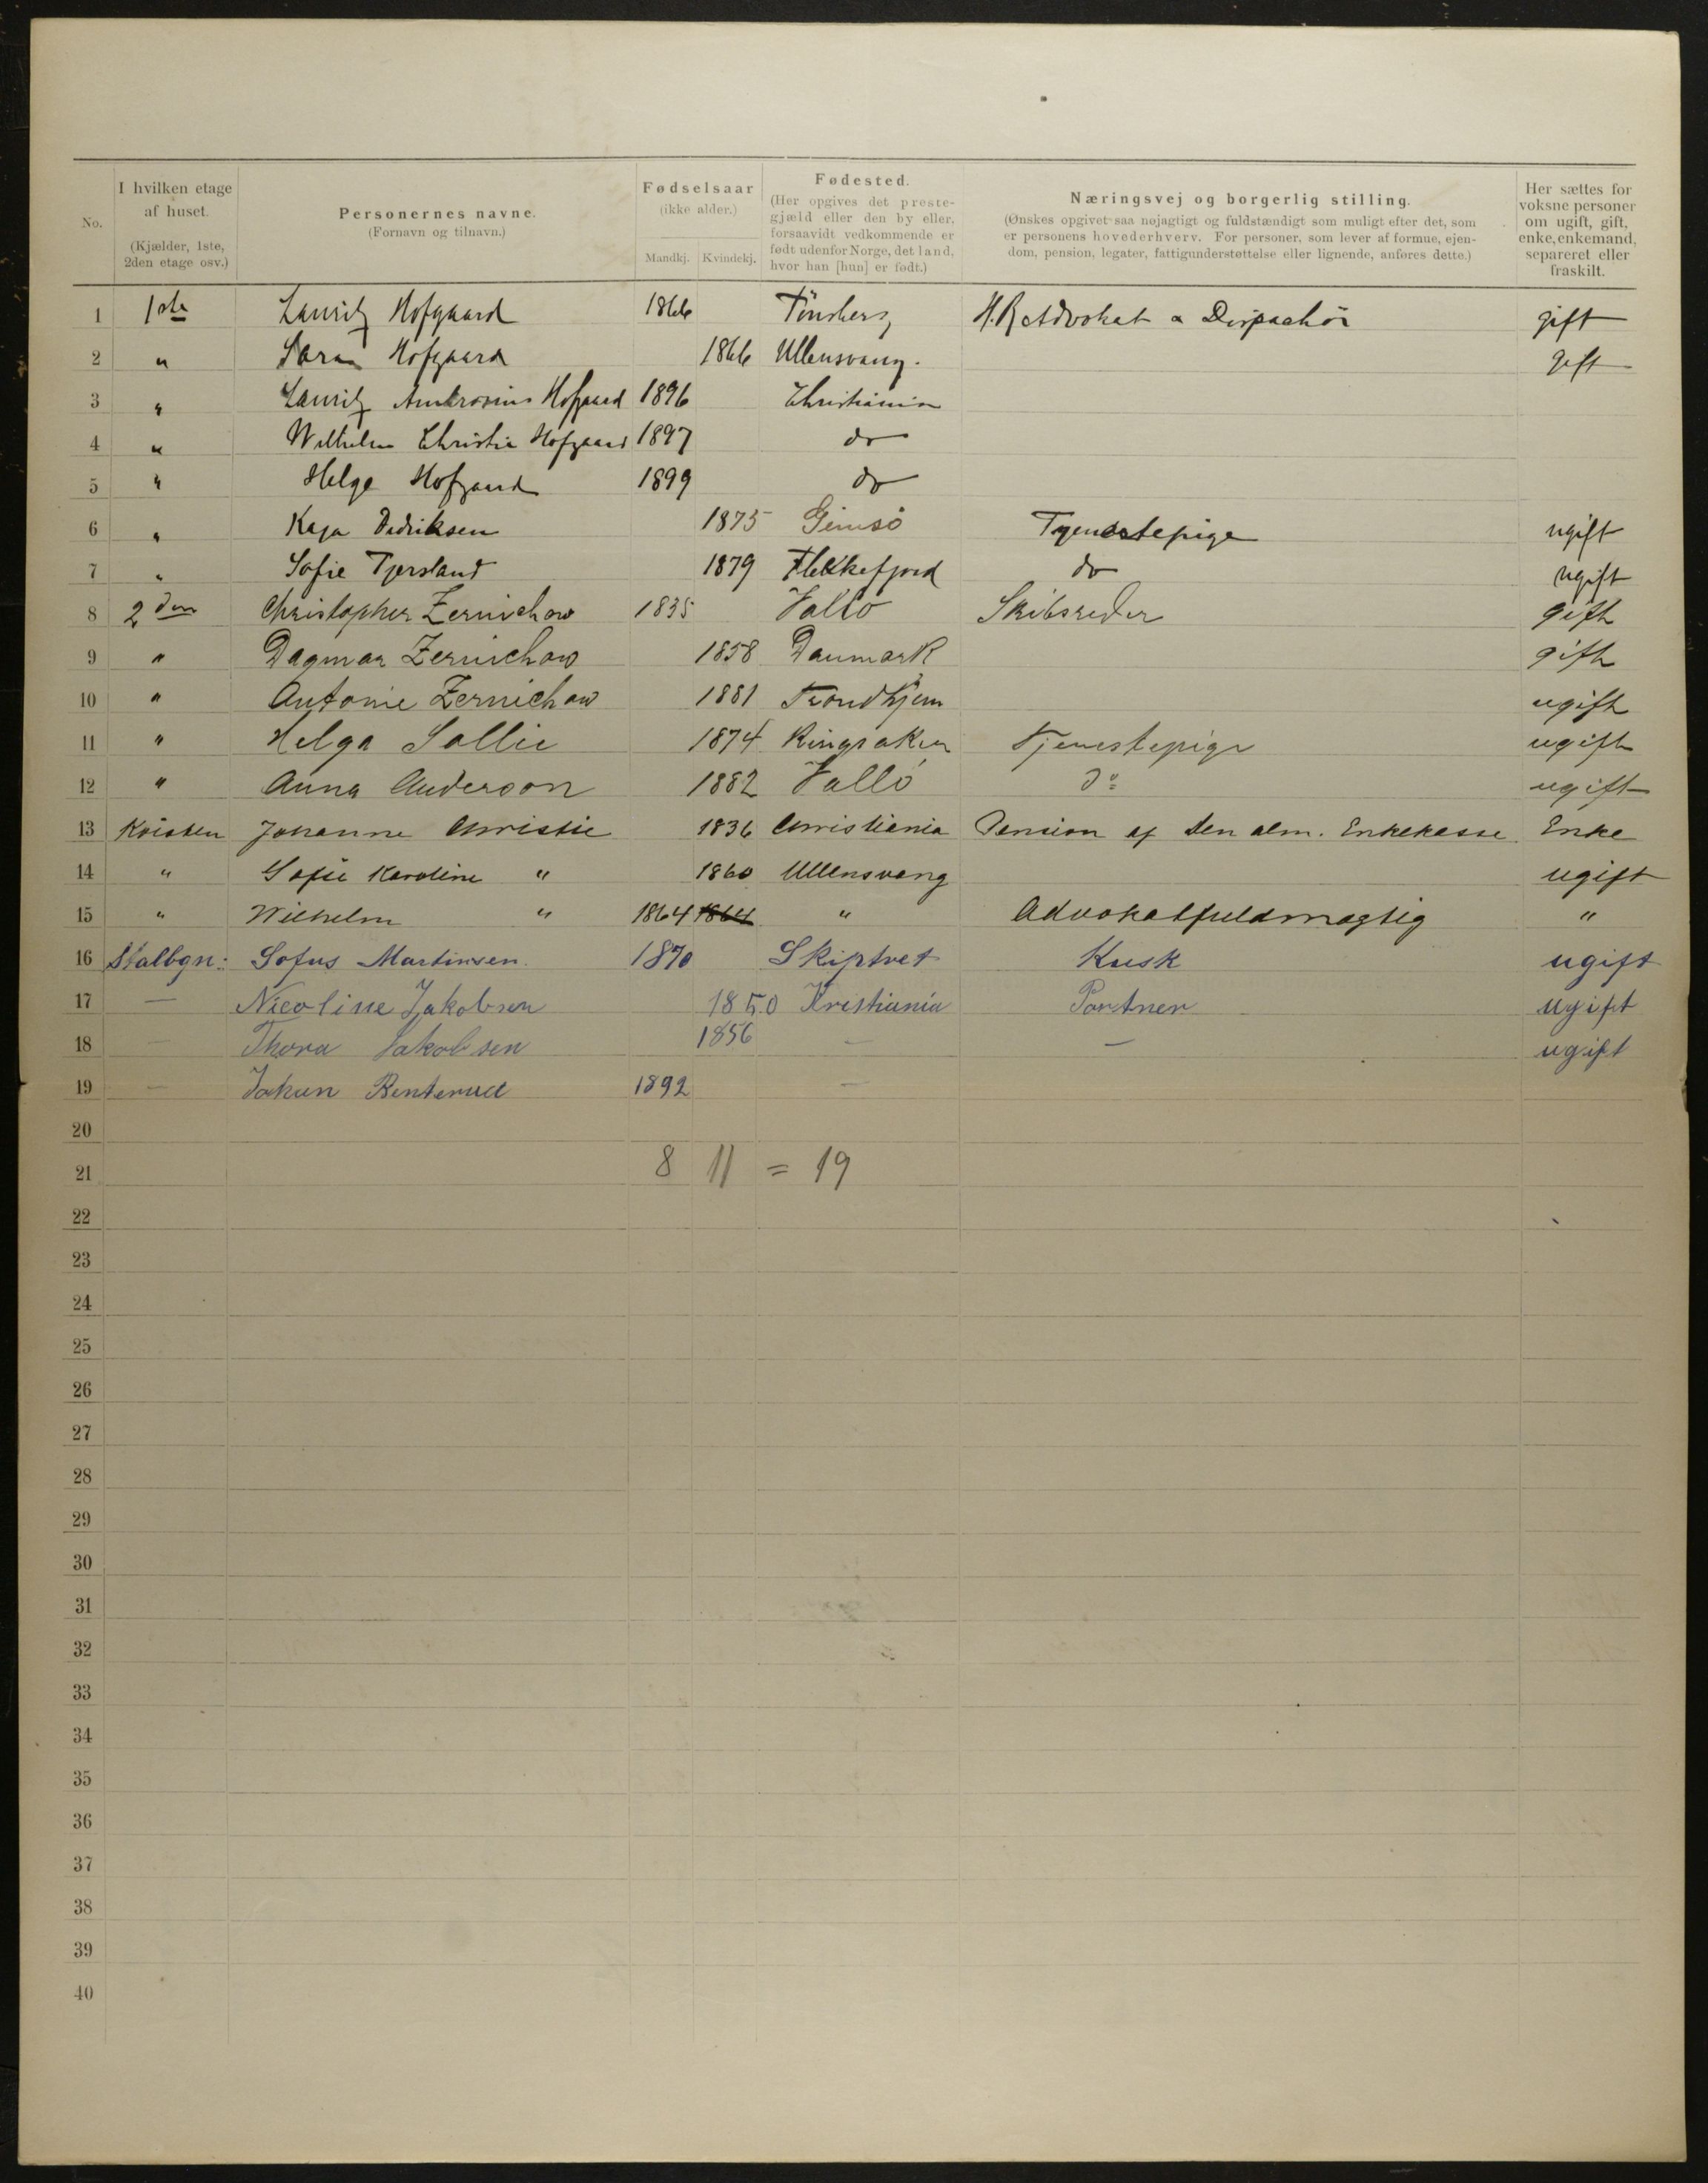 No. I hvilken etage af huset. (Kjælder, 1ste, 2den etage osv.) Personernes navne. (Fornavn og tilnavn.) Fødselsaar (ikke alder.) Mandkj. Kvindekj. Fødested. (Her opgives det prestegjæld eller den by eller, forsaavidt vedkommende er født udenfor Norge, det land, hvor han [hun] er født.) Næringsvej og borgerlig stilling. (Ønskes opgivet saa nøjagtigt og fuldstændigt som muligt efter det, som er personens hovederhverv. For personer, som lever af formue, ejendom, pension, legater, fattigunderstøttelse eller lignende, anføres dette.) Her sættes for voksne personer om ugift, gift, enke, enkemand, separeret eller fraskilt.
1 1ste Lauritz Hofgaard 1866 Tönsberg H.R.Advokat & Dispachör gift
2 " Sara Hofgaard 1866 Ullensvang. gift
3 " Lauritz Ambrosius Hofgaard 1896 Christiania
4 " Wilhelm Christie Hofgaard 1897 do
5 " Helge Hofgaard 1899 do
6 " Kaja Dedriksen 1875 Gimsö Tyenestepige ugift
7 " Sofie Tjersland 1879 Flekkefjord do ugift
8 2den Christopher Zernichow 1835 Vallö Skibsreder gift
9 " Dagmar Zernichow 1858 Danmark gift
10 " Antonie Zernichow 1881 Trondhjem ugift
11 " Helga Sollie 1874 Ringsaker Tjenestepige ugift
12 " Anna Anderson 1882 Vallö do ugift
13 Kvisten Johanne Christie 1836 Christiania Pension af den alm. Enkekasse Enke
14 " Sofie Karoline " 1860 Ullensvang ugift
15 " Wilhelm " 1864 1864 " Advokatfuldmægtig "
16 Stalbgn: Sofus Martinsen. 1870 Skiptvet Kusk ugift
17 — Nicoline Jakobsen 1850 Kristiania Portner ugift
18 — Thora Jakobsen 1856 — — ugift
19 — Jakun Renterud 1892 —
20
21 8 11 = 19
22
23
24
25
26
27
28
29
30
31
32
33
34
35
36
37
38
39
40